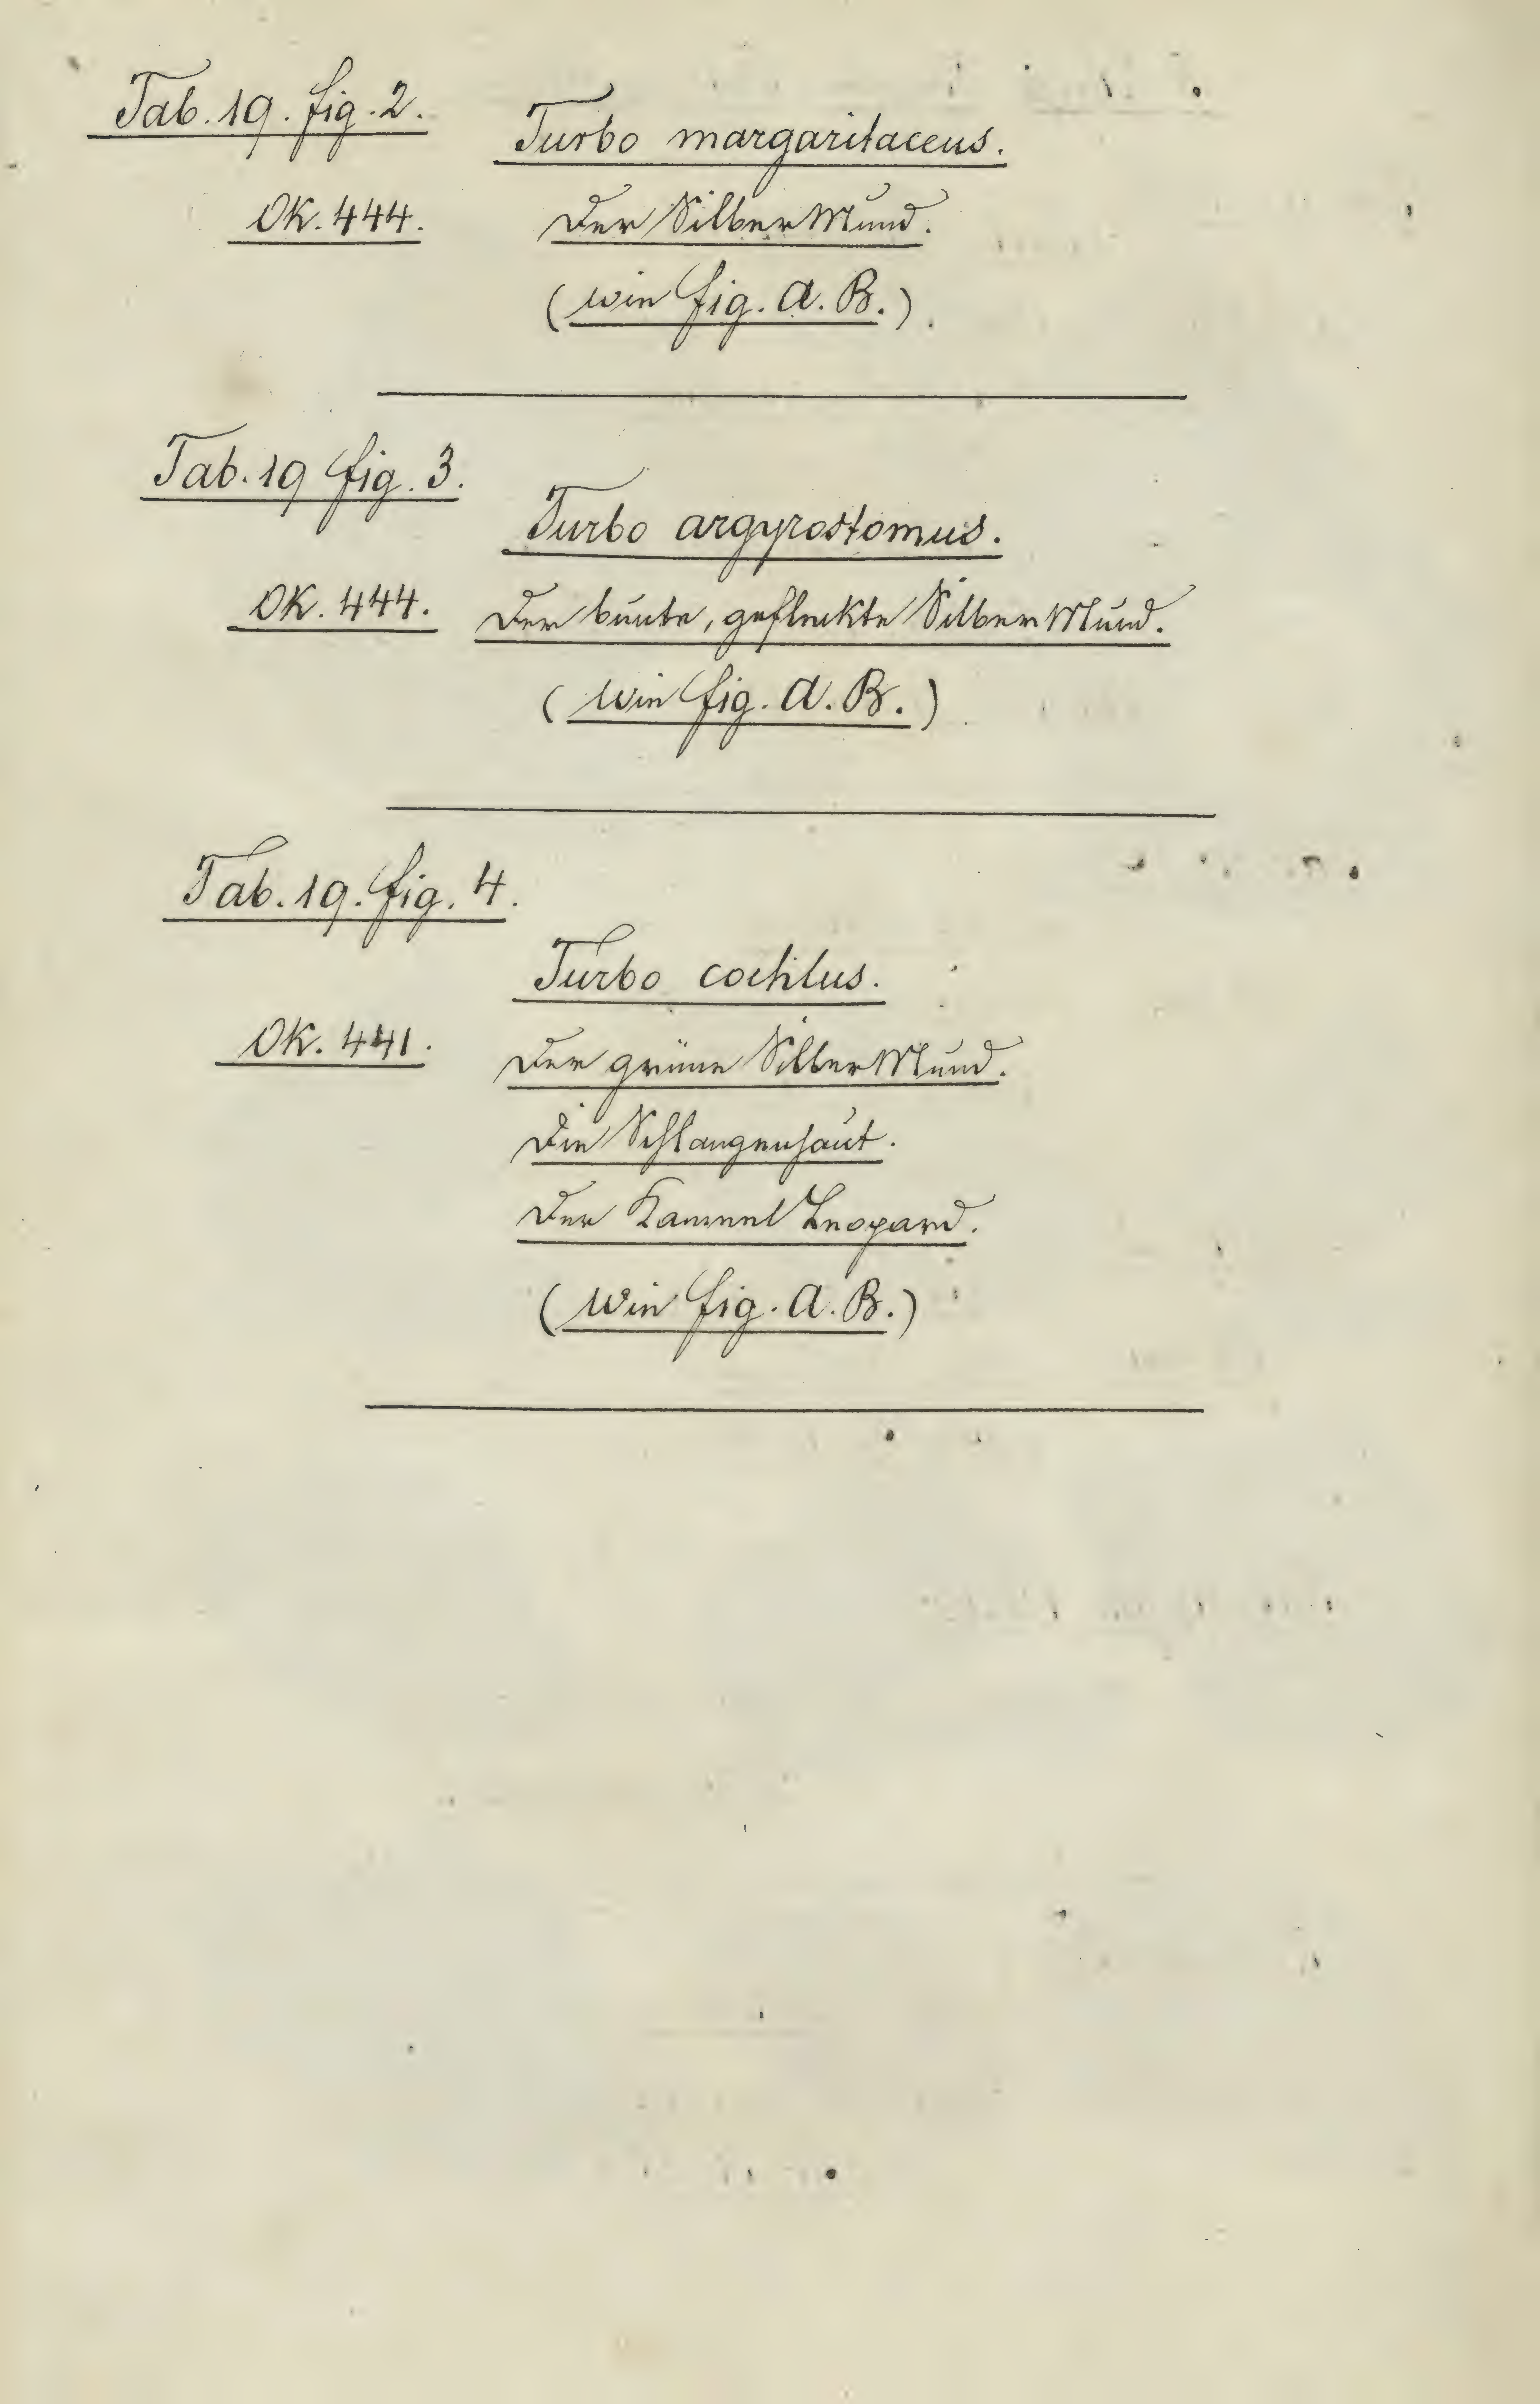 Tab. 19. fig. 2.
Turbo margaritaceus.
OK. 444. Der Silber Mund.
(wie fig. A. B.).
Tab. 19 fig. 3.
Turbo argyrostomus.
OK. 444. Der bunte, gefleckte Silber Mund.
(wie fig. A. B.)
Tab. 19. fig. 4.
Turbo cochlus.
OK. 441. Der grüne Silber Mund.
Die Schlangenhaut.
Der Kameel Leopard.
(wie fig. A. B.)